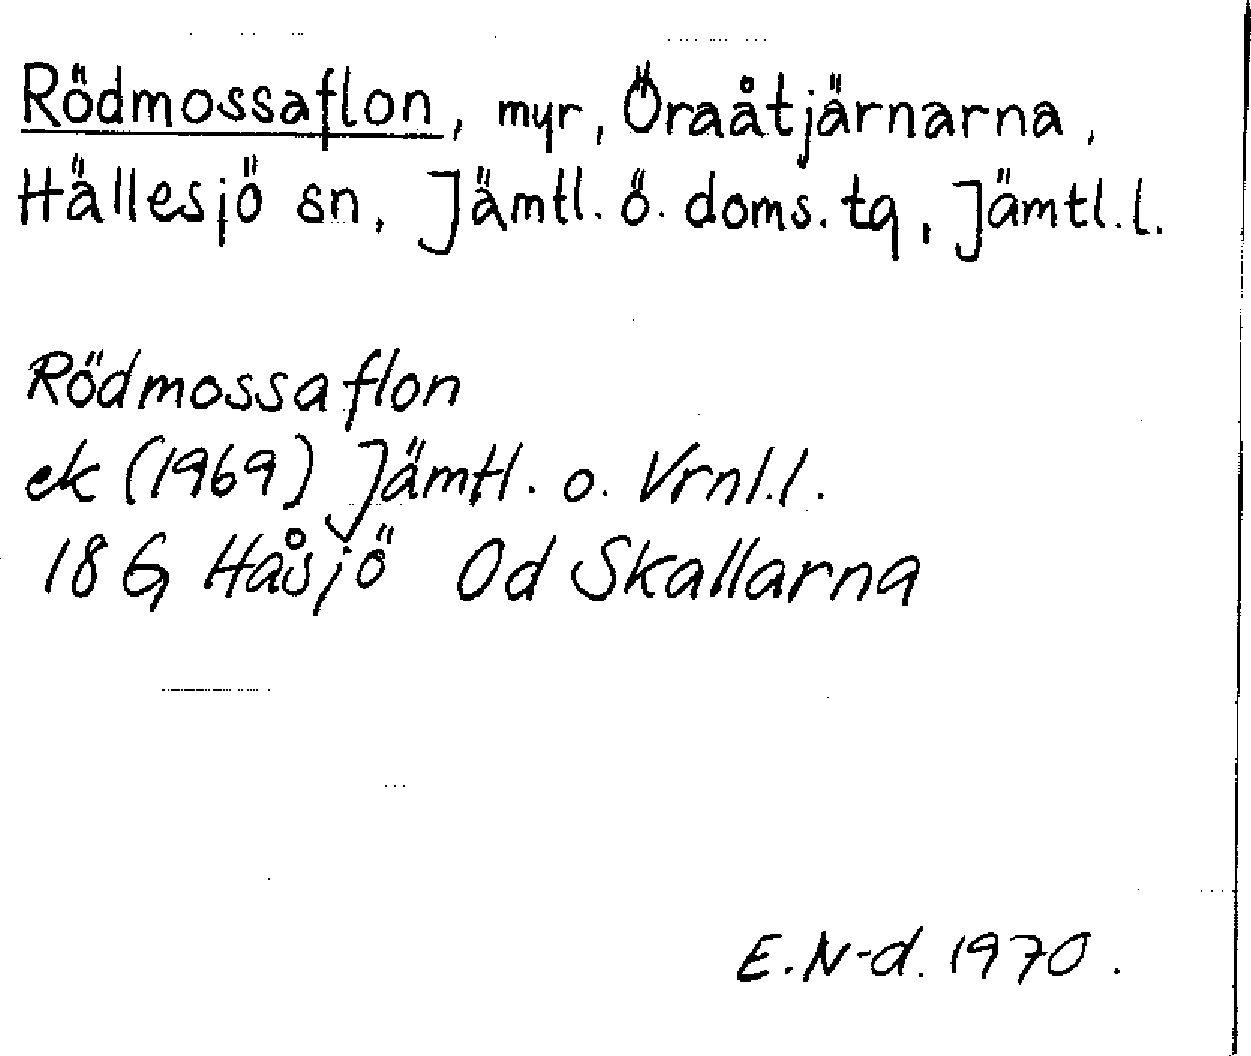 Rödmossaflon, myr, Öraåtjärnarna,
Hällesjö sn, Jämtl. ö. doms. tg, Jämtl. l.
Rödmossaflon
ek (1969) Jämtl. o. Vrnl. l.
18 G Håsjö Od Skallarna
E. N-d. 1970.